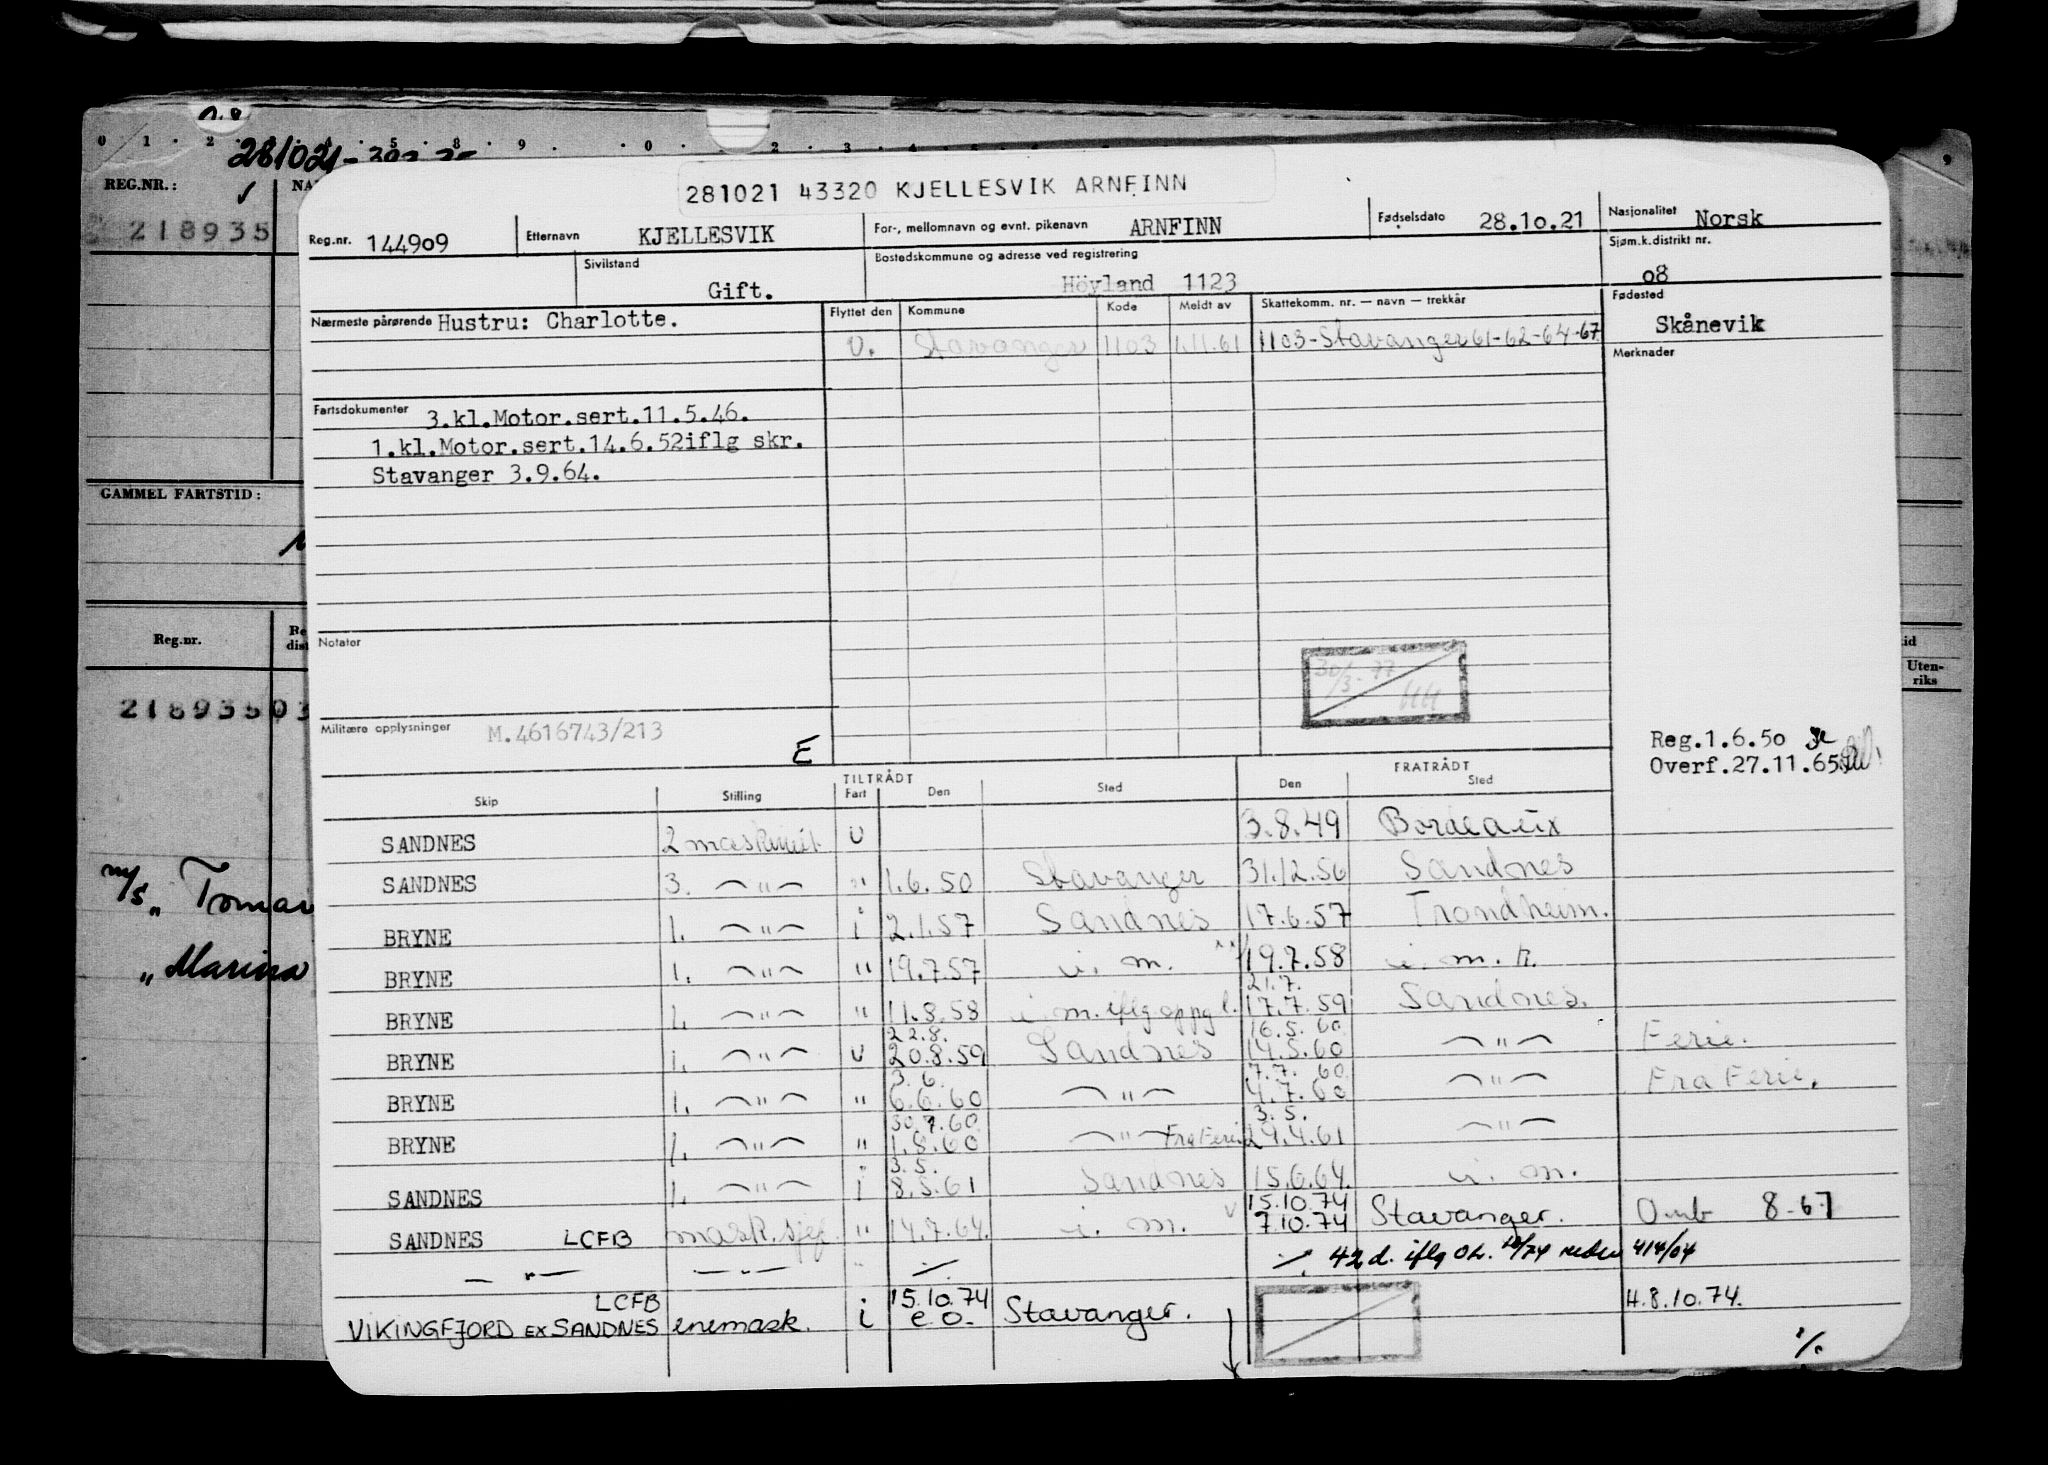 0 1 2 5 8 9 0 2 3 9
281021-
REG.NR.:
218935
GAMMEL FARTSTID:
Reg.nr.
218935 03
m/s „ Tomar
„ Marina
Uten-
riks
281021 43320 KJELLESVIK ARNFINN
Reg.nr. 144909 Etternavn KJELLESVIK For-, mellomnavn og evnt. pikenavn ARNFINN Fødselsdato 28.10.21 Nasjonalitet Norsk
Sivilstand Gift. Bostedskommune og adresse ved registrering Höyland 1123 Sjøm.k.distrikt nr. 08
Nærmeste pårørende Hustru: Charlotte. Flyttet den Kommune Kode Meldt av Skattekomm. nr. — navn — trekkår Fødested Skånevik
U. Stavanger 1103 1.11.61 1103-Stavanger 61-62-64-67 Merknader
Fartsdokumenter 3.kl.Motor.sert.11.5.46.
1.kl.Motor.sert.14.6.52iflg skr.
Stavanger 3.9.64.
Notater
30/3-77
HH
Militære opplysninger M.4616743/213 E
Reg.1.6.50
Overf.27.11.65
TILTRÅDT FRATRÅDT
Skip Stilling Fart Den Sted Den Sted
SANDNES 2 maskinist. U 3.8.49 Bordeaux
SANDNES 3. —"— " 1.6.50 Stavanger 31.12.56 Sandnes
BRYNE 1. —"— i 2.1.57 Sandnes 17.6.57 Trondheim.
BRYNE 1. —"— " 19.7.57 i. m. 19.7.58 i. m. R.
21.7.
BRYNE 1. —"— " 11.8.58 i m. iflg oppg l. 17.7.59 Sandnes.
22.8. 16.5.60
BRYNE 1. —"— U 20.8.59 Sandnes 14.5.60 —"— Ferie.
3.6. 7.7.60
BRYNE 1. —"— " 6.6.60 —"— 4.7.60 —"— Fra Ferie.
30.7.60 3.5.
BRYNE 1. —"— " 1.8.60 —"— Fra Ferie 29.4.61 —"—
3.5.
SANDNES 1. —"— i 8.5.61 Sandnes 15.6.64. i. m.
15.10.74
SANDNES LCFB mask.sjef. " 14.7.64. i. m. 7.10.74 Stavanger. Omb 8-67
—"— —"— " ·/· ·/· 42 d. iflg 10/74 414/04
LCFB 15.10.74 H.8.10.74.
VIKINGFJORD EX SANDNES enemask. i e.o. Stavanger.
·/·